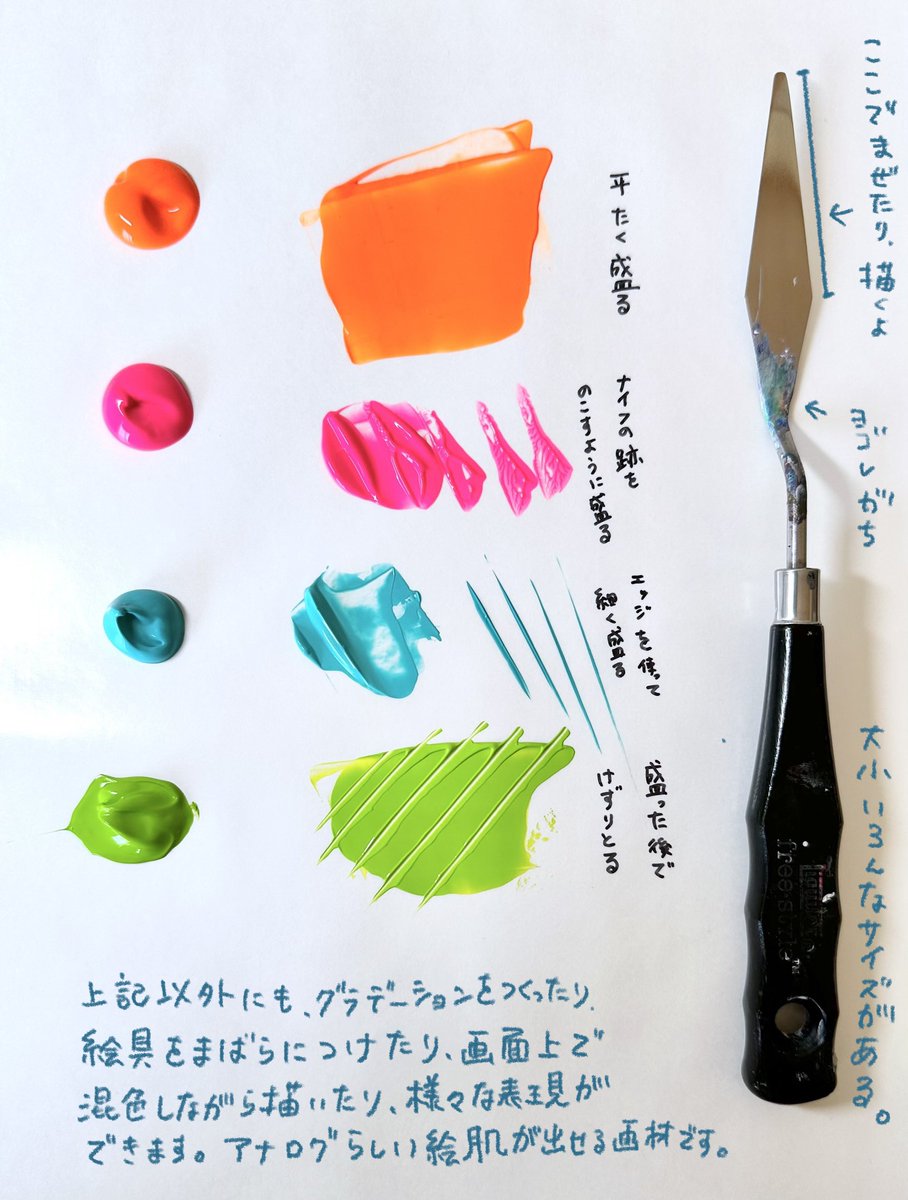 ここでまぜたり、描くよ
ヨゴレがち
大小いろんなサイズがある。
平たく盛る
ナイフの跡を
のこすように盛る
エッジを使って
細く盛る
盛った後で
けずりとる
freestyle™
上記以外にも、グラデーションをつくったり、
絵具をまばらにつけたり、画面上で
混色しながら描いたり、様々な表現が
できます。アナログらしい絵肌が出せる画材です。